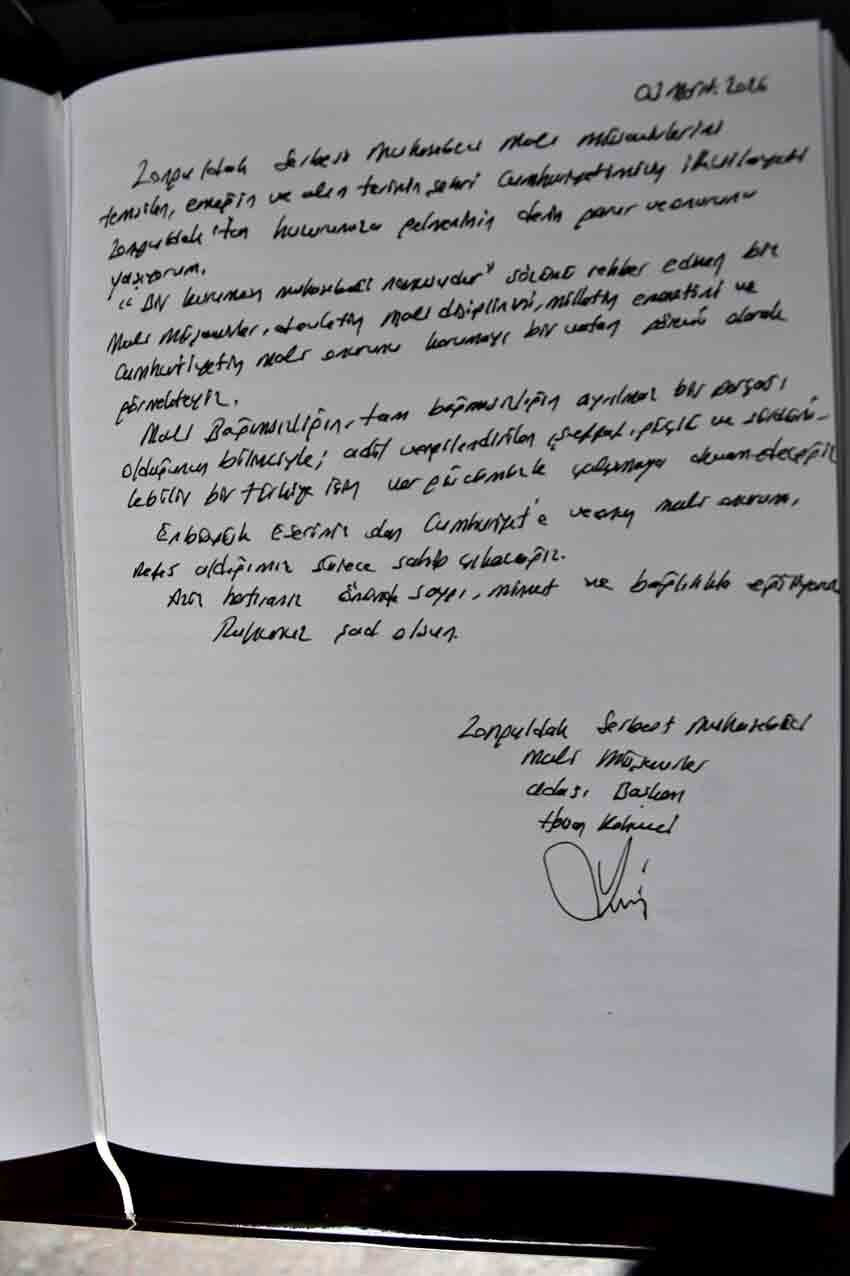 Mart. 2026
Zonguldak Serbest Muhasebeci Mali Müşavirlerini
temsilen, emeğin ve alın terinin şehri Cumhuriyetimizin ilk vilayeti
Zonguldak'tan huzurunuza gelmenin derin gurur ve onurunu
yaşıyorum.
"Bir kurumun muhasebesi namusudur" sözünü rehber edinen biz
Mali Müşavirler, devletin mali disiplinini, milletin emanetini ve
Cumhuriyetin mali onurunu korumayı bir vatan görevi olarak
görmekteyiz.
Mali Bağımsızlığın, tam bağımsızlığın ayrılmaz bir parçası
olduğunun bilinciyle; adil vergilendirilen, şeffaf, güçlü ve sürdürü-
lebilir bir Türkiye için var gücümüzle çalışmaya devam edeceğiz
En büyük Eseriniz olan Cumhuriyet'e ve onun mali onuruna,
nefes aldığımız sürece sahip çıkacağız.
Aziz hatıranız önünde saygı, minnet ve bağlılıkla eğiliyoruz
Ruhunuz şad olsun.
Zonguldak Serbest Muhasebeci
Mali Müşavirler
Odası Başkanı